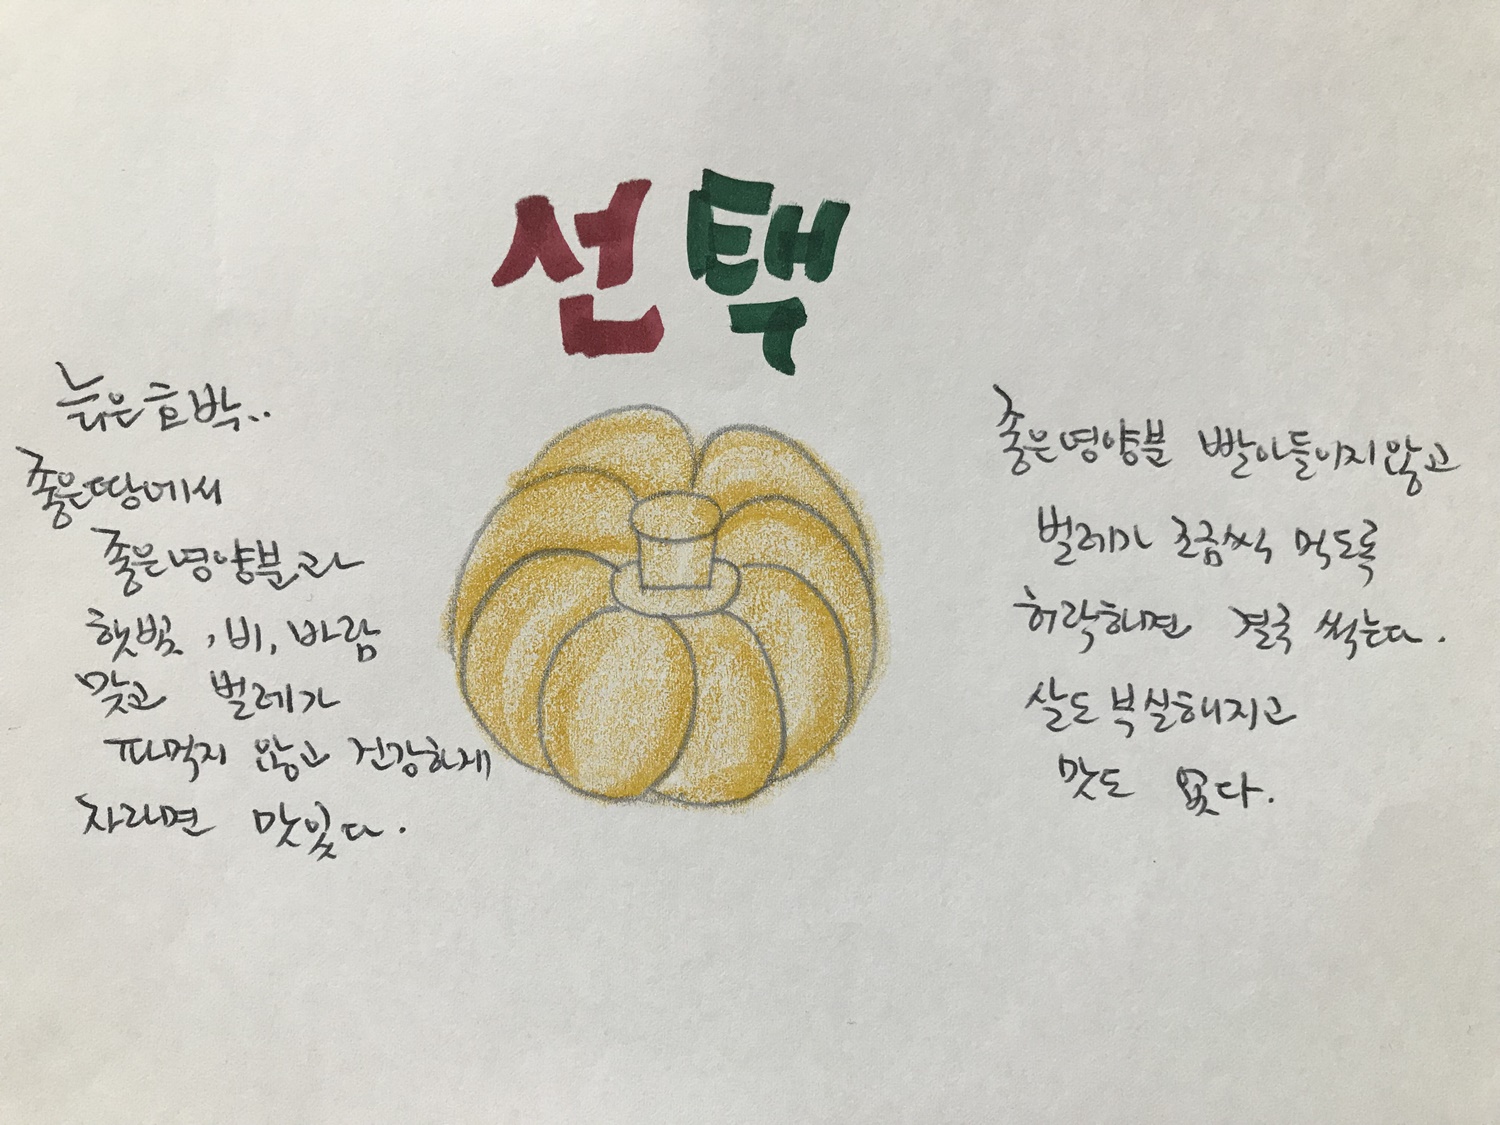 선택
늙은호박..
좋은땅에서
좋은영양분과
햇빛, 비, 바람
맞고 벌레가
파먹지 않고 건강하게
자라면 맛있다.
좋은영양분 빨아들이지않고
벌레가 조금씩 먹도록
허락하면 결국 썩는다.
살도 부실해지고
맛도 없다.